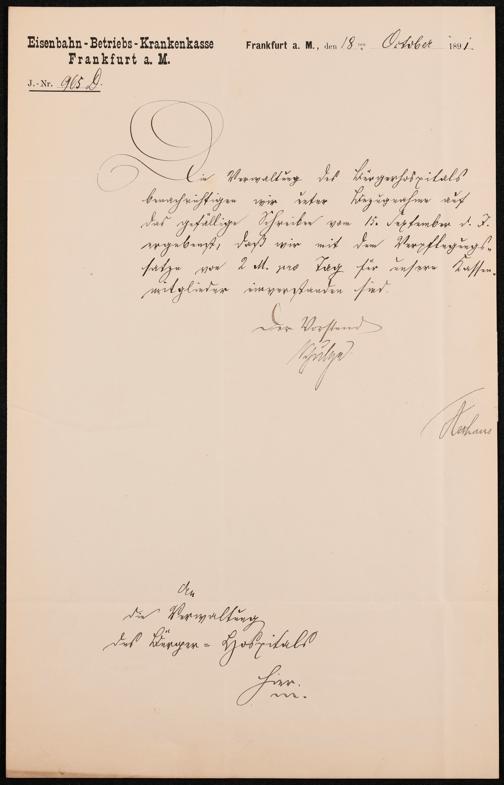 Eisenbahn-Betriebs-Krankenkasse
Frankfurt a. M.
J.-Nr. 965 D.
Frankfurt a. M., den 18ten October 1891.
Die Verwaltung des Bürgerhospitals
benachrichtigen wir unter Bezugnahme auf
das gefällige Schreiben vom 15. September d. J.
ergebenst, daß wir mit dem Verpflegungs-
satze von 2 M. pro Tag für unsere Kassen-
mitglieder einverstanden sind.
Der Vorstand
Schulze
An
die Verwaltung
des Bürger-Hospitals
hier.